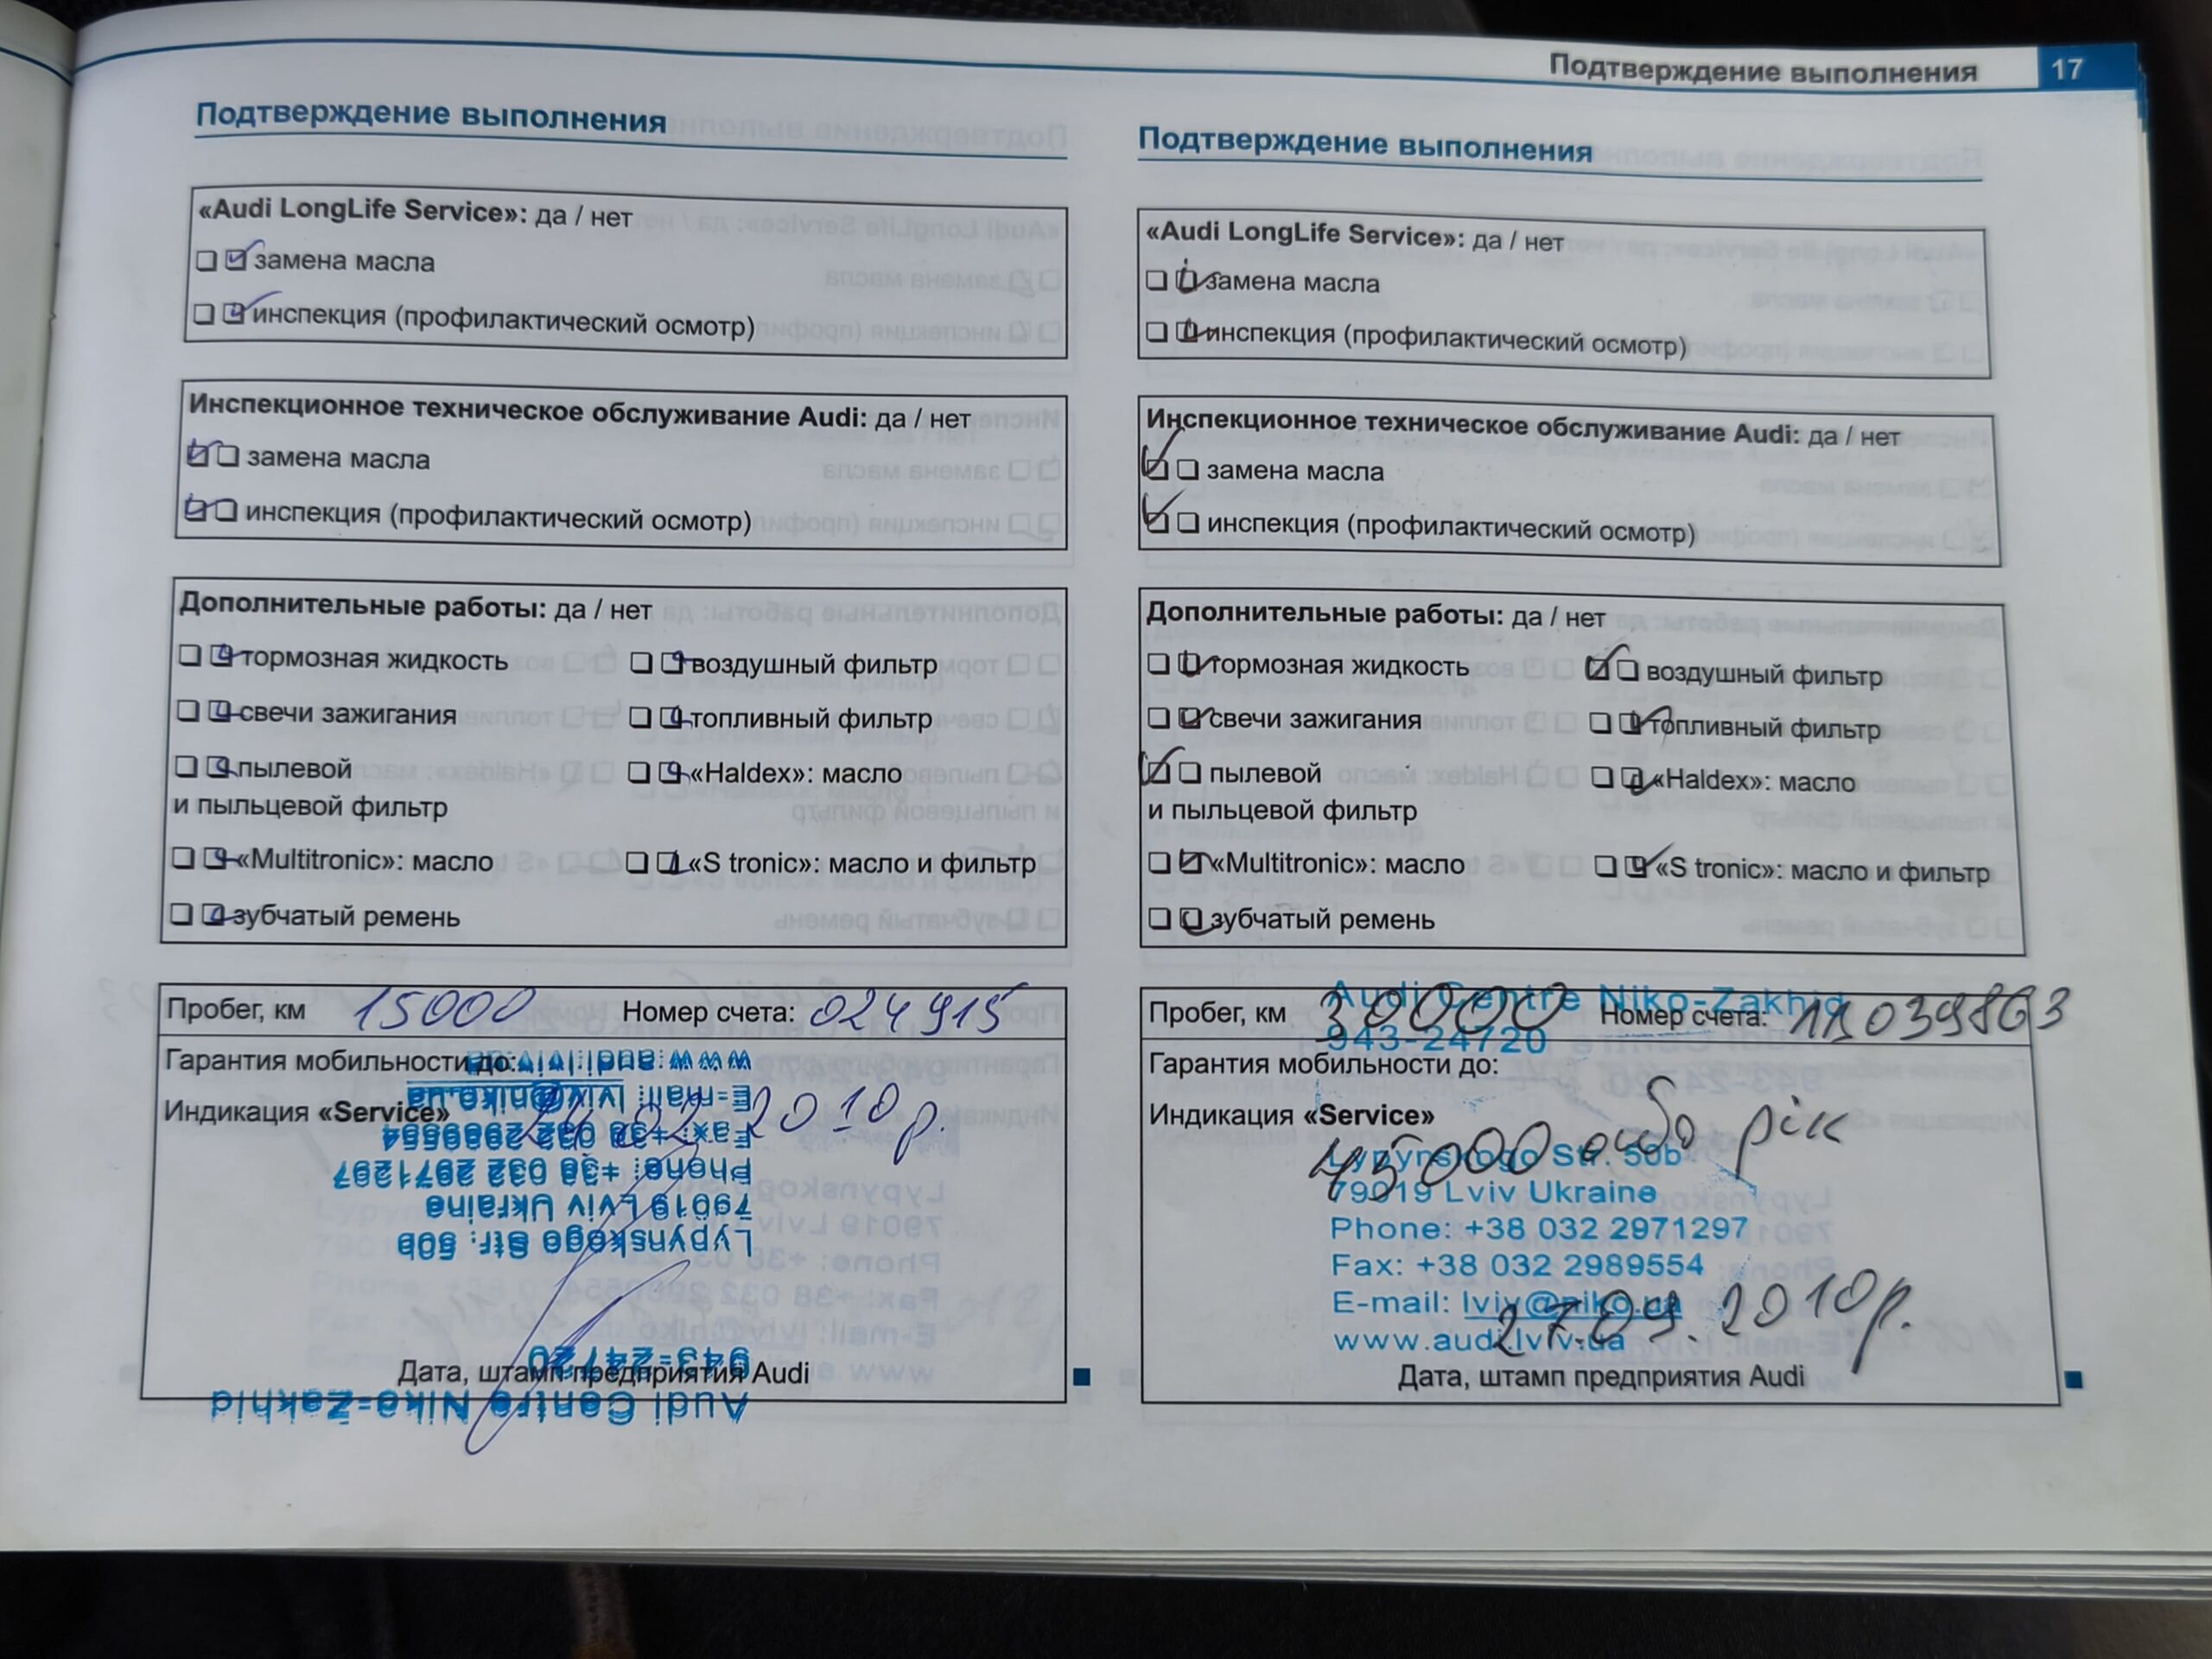 Подтверждение выполнения 17
Подтверждение выполнения
«Audi LongLife Service»: да / нет
замена масла
инспекция (профилактический осмотр)
Инспекционное техническое обслуживание Audi: да / нет
замена масла
инспекция (профилактический осмотр)
Дополнительные работы: да / нет
тормозная жидкость воздушный фильтр
свечи зажигания топливный фильтр
пылевой «Haldex»: масло
и пыльцевой фильтр
«Multitronic»: масло «S tronic»: масло и фильтр
зубчатый ремень
Пробег, км 15000 Номер счета: 024915
Гарантия мобильности до:
Индикация «Service»
2010р.
Дата, штамп предприятия Audi
Audi Centre Niko-Zakhid
943-24720
Lypynskogo Str. 50b
79019 Lviv Ukraine
Phone: +38 032 2971297
Fax: +38 032 2989554
E-mail: lviv@niko.ua
www.audi.lviv.ua
Подтверждение выполнения
«Audi LongLife Service»: да / нет
замена масла
инспекция (профилактический осмотр)
Инспекционное техническое обслуживание Audi: да / нет
замена масла
инспекция (профилактический осмотр)
Дополнительные работы: да / нет
тормозная жидкость воздушный фильтр
свечи зажигания топливный фильтр
пылевой «Haldex»: масло
и пыльцевой фильтр
«Multitronic»: масло «S tronic»: масло и фильтр
зубчатый ремень
Audi Centre Niko-Zakhid
Пробег, км 30000 Номер счета:
943-24720
Гарантия мобильности до:
Индикация «Service»
45000 або рік
Lypynskogo Str. 50b
79019 Lviv Ukraine
Phone: +38 032 2971297
Fax: +38 032 2989554
E-mail: lviv@niko.ua
www.audi.lviv.ua
27.09.2010р.
Дата, штамп предприятия Audi